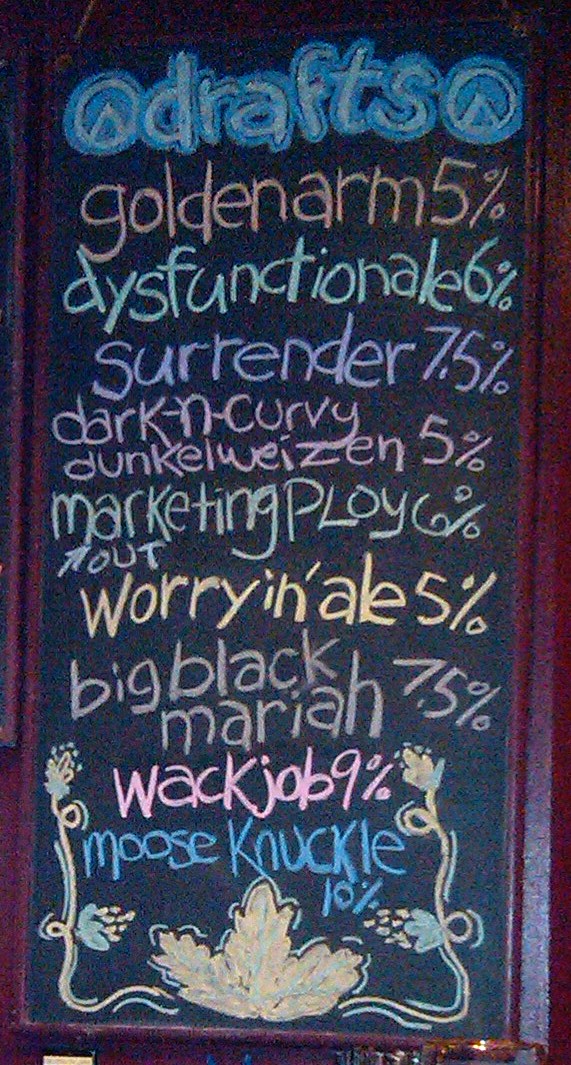 drafts
goldenarm 5%
dysfunctionale 6%
surrender 7.5%
dark-n-curvy
dunkelweizen 5%
marketing PLoy 6%
out
worryin' ale 5%
big black
mariah 7.5%
wackjob 9%
moose Knuckle
10%